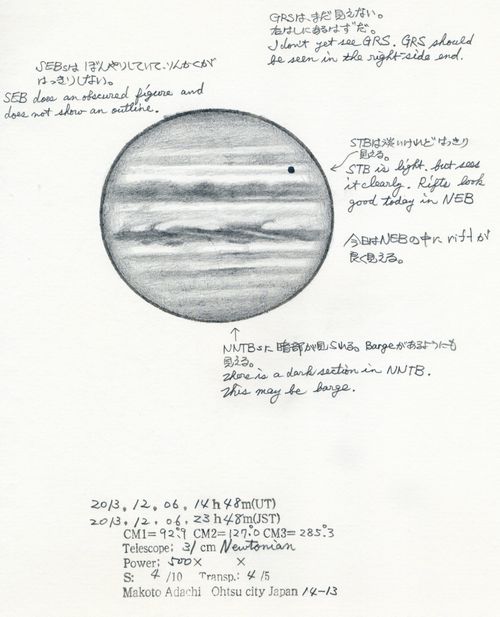 GRSは、まだ見えない。
右はしにあるはずだ。
I don't yet see GRS. GRS should
be seen in the right-side end.
SEBsは ぼんやりしていて、りんかくが
はっきりしない。
SEB does an obscured figure and
does not show an outline.
STBは淡いけれど はっきり
見える。
STB is light, but sees
it clearly. Rifts look
good today in NEB
今日はNEBの中に riftが
良く見える。
NNTBsに 暗部が見られる。Bargeがあるようにも
見える。
There is a dark section in NNTB.
This may be barge.
2013. 12. 06. 14h48m(UT)
2013. 12. 06. 23h48m(JST)
CM1=92.°9 CM2=127.°0 CM3=285.°3
Telescope: 31 cm Newtonian
Power: 500× ×
S: 4 /10 Transp.: 4 /5
Makoto Adachi Ohtsu city Japan 14-13